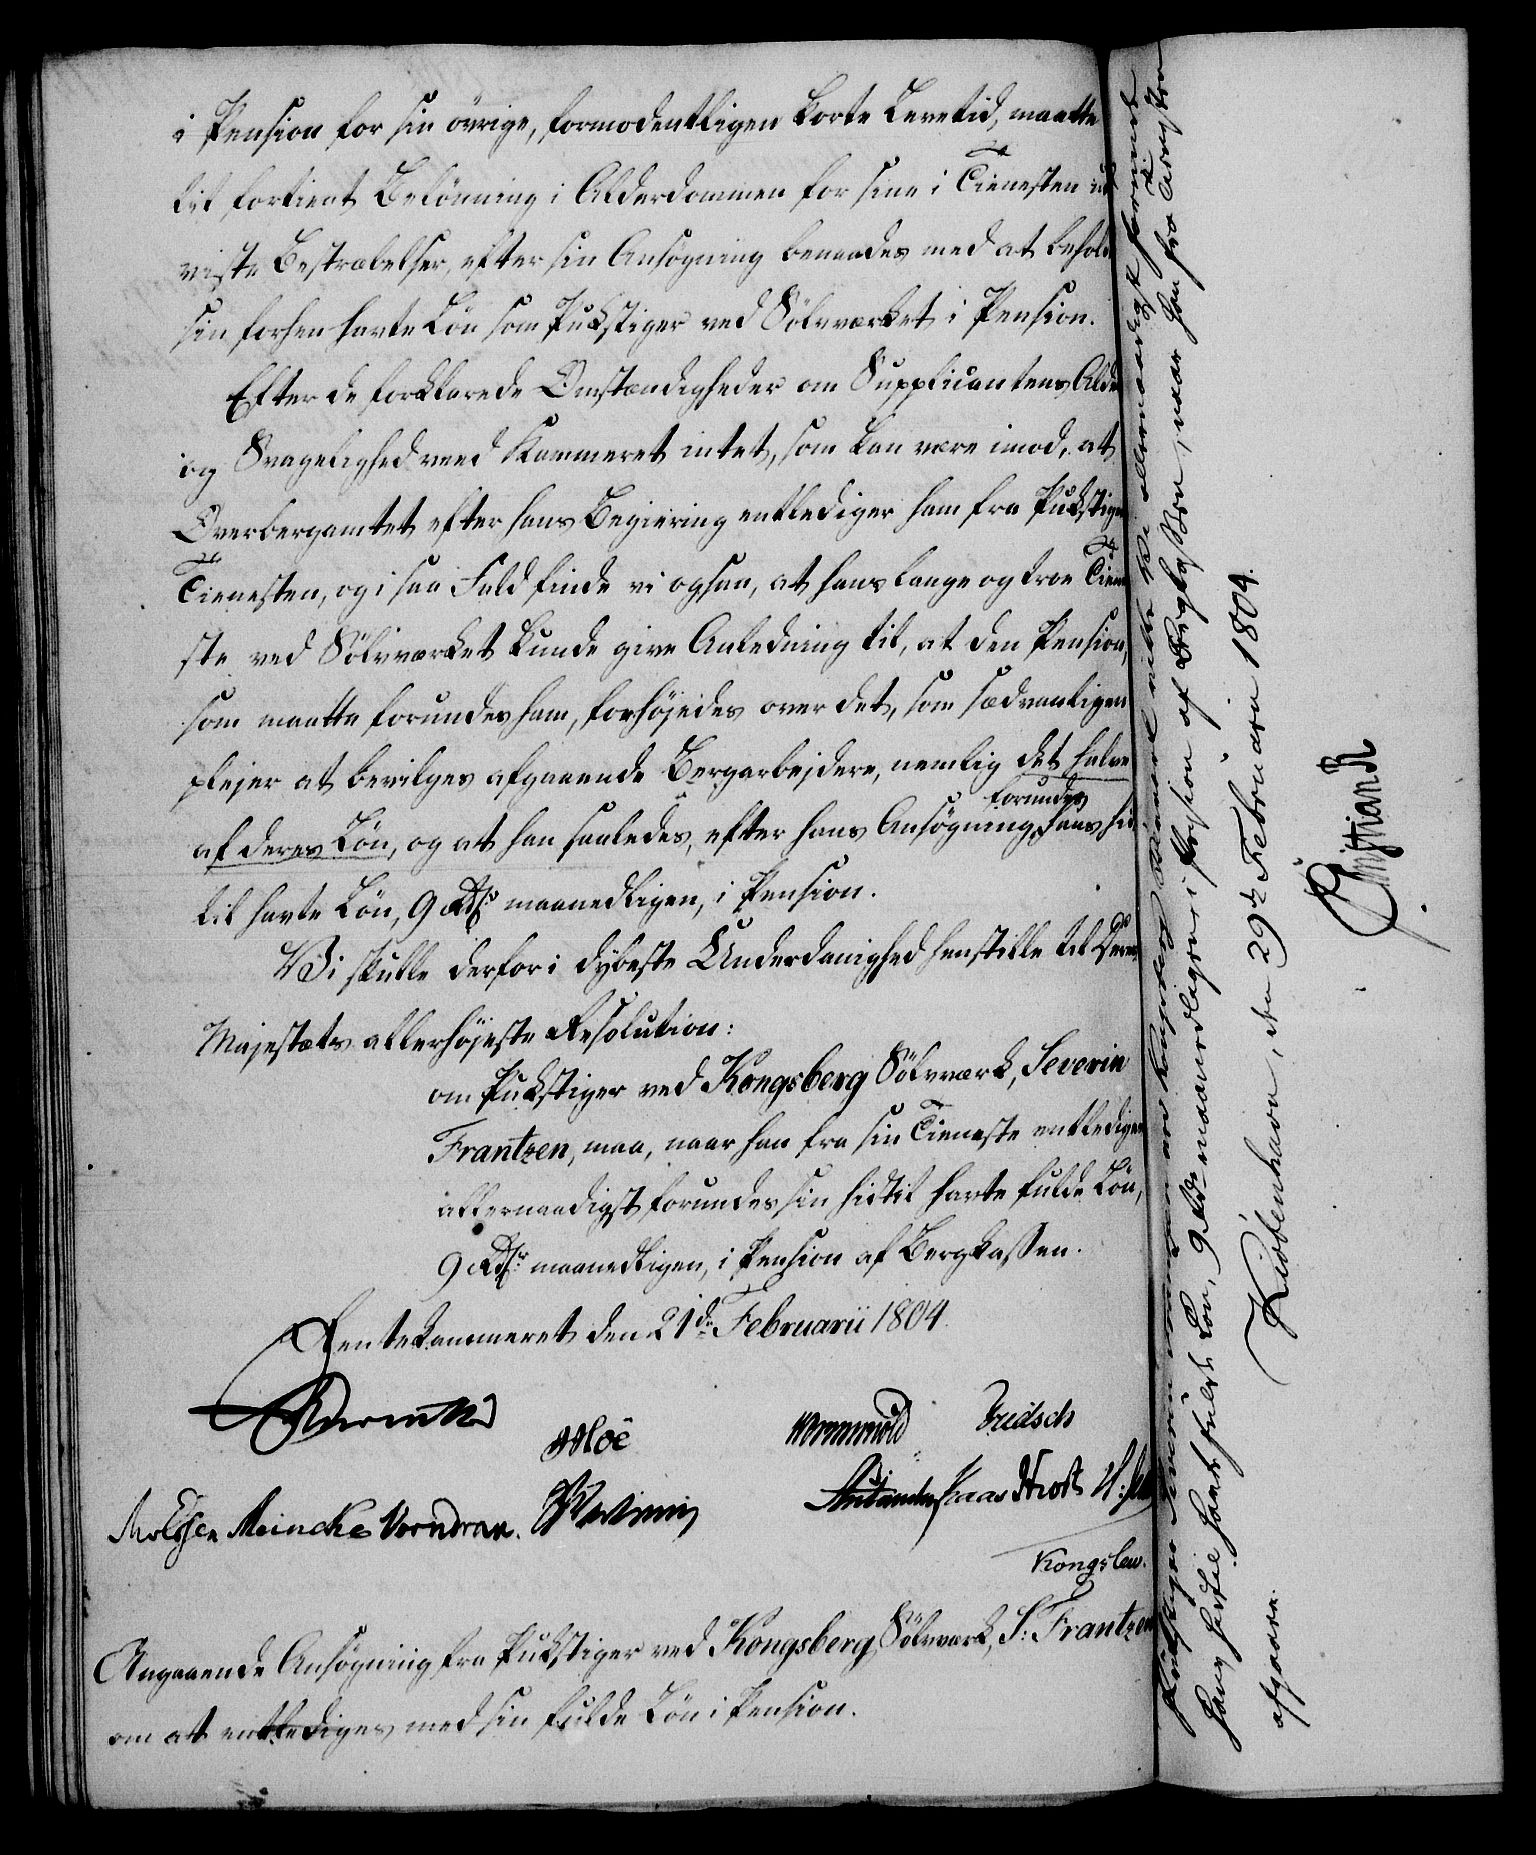 i Pension for sin övrige, formodentligen korte Levetid, maatte
til fortient Belönning i Alderdommen for sine i Tienesten ud
viste Bestræbelser, efter sin Ansögning benaades med at behol
sin forhen havte Lön som Pukstiger ved Sölvværket i Pension.
Efter de forklarede Omstændigheder om Supplicantens Alder
og Svagelighed veed Kammeret intet, som kan være imod, at
Overbergamtet efter hans Begiering entlediger ham fra Pukstiger
Tienesten, og i saa Fald finde vi ogsaa, at hans lange og troe Tiene
ste ved Sölvværket kunde give Anledning til, at den Pension,
som maatte forundes ham, forhöjedes over det, som sædvanligen
plejer at bevilges afgaaende Bergarbejdere, nemlig det halve
af deres Lön, og at han saaledes, efter hans Ansögning forundes hans hid
til havte Lön, 9 Rdr maanedligen, i Pension.
Vi skulle derfor i dybeste Underdanighed henstille til Deres
Majestæts allerhöjeste Resolution:
om Pukstiger ved Kongsberg Sölvværk, Severin
Frantzen, maa, naar han fra sin Tieneste entlediges
allernaadigst forundes sin hidtil havte fulde Lön,
9 Rdr maanedligen, i Pension af Bergkassen.
Rentekammeret den 21de Februarii 1804.
Moe Wormskiold
Meincke Vorndran.
Kaas
Kongslew.
Angaaende Ansögning fra Pukstiger ved Kongsberg Sölvværk, S: Frantzen
om at entlediges med sin fulde Lön i Pension.
Pukstiger Severin ved Kongsberg Sölvværk ville Vi allernaadigst forundt
hans hidtil havte fulde Lön, 9 Rdr maanedligen i Pension af Bergkassen, naar han fra Tienesten
afgaaer.
Kiöbenhavn, den 29de Februarii 1804.
Christian R